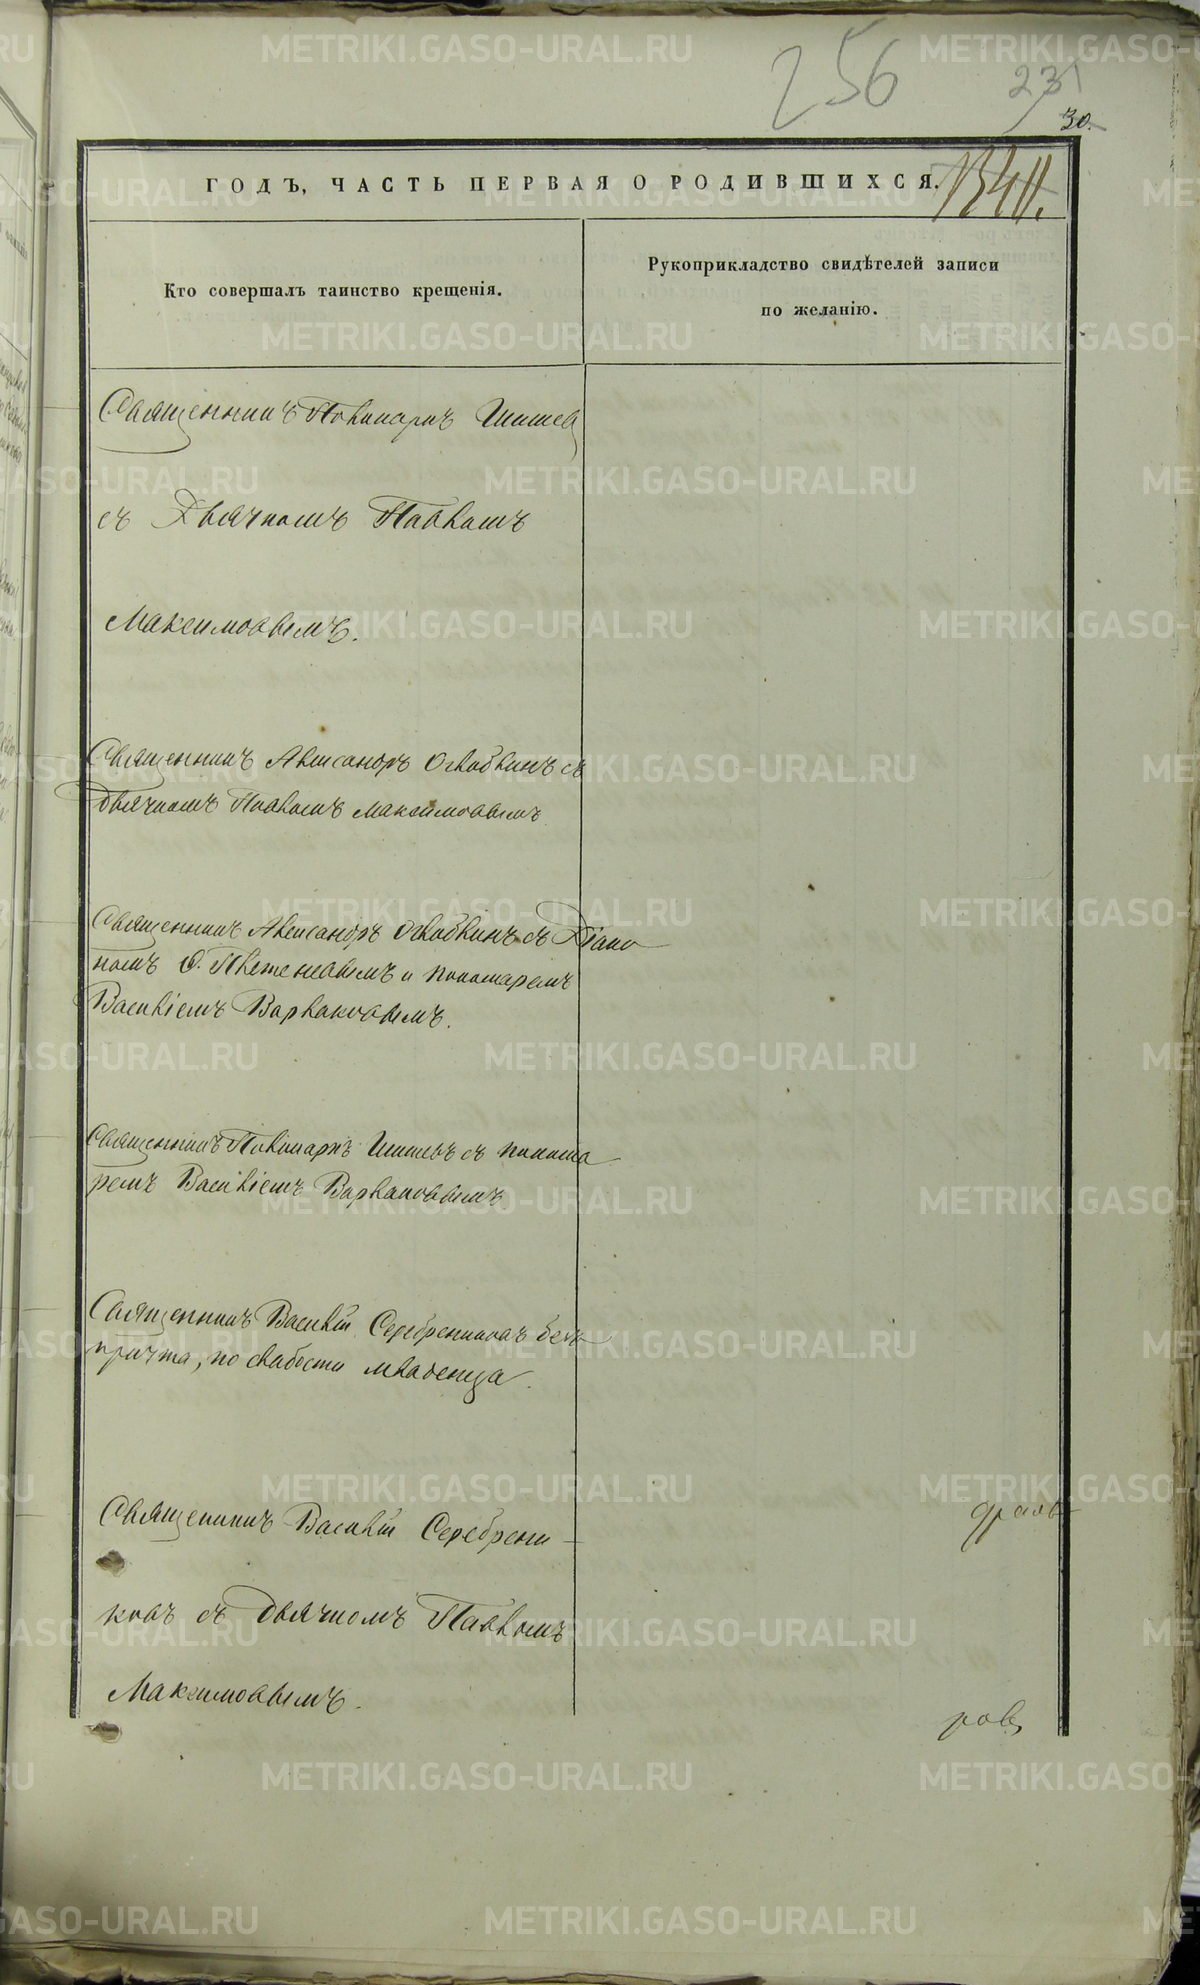 256
231
30.
ГОДЪ, ЧАСТЬ ПЕРВАЯ О РОДИВШИХСЯ.
Кто совершалъ таинство крещенія.
Рукоприкладство свидѣтелей записи
по желанію.
Священникъ Поликарпъ
съ Дьячкомъ Павломъ
Максимовымъ.
Священникъ Александръ съ
дьячкомъ Павломъ Максимовымъ
Священникъ Александръ съ Діако
номъ и пономаремъ
Василіемъ Варлаковымъ.
Священникъ Поликарпъ съ понома
ремъ Василіемъ Варлаковымъ
Священникъ Василій Серебрениковъ безъ
причта, по слабости младенца.
Священникъ Василій Серебрени-
ковъ съ дьячкомъ Павломъ
Максимовымъ.
METRIKI.GASO-URAL.RU